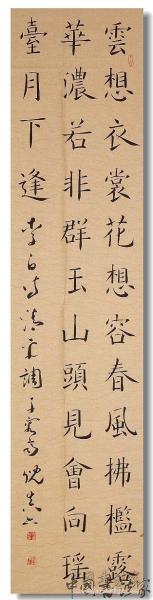 雲想衣裳花想容春風拂檻露
華濃若非群玉山頭見會向瑤
臺月下逢 李白詩清平調
中國書法家